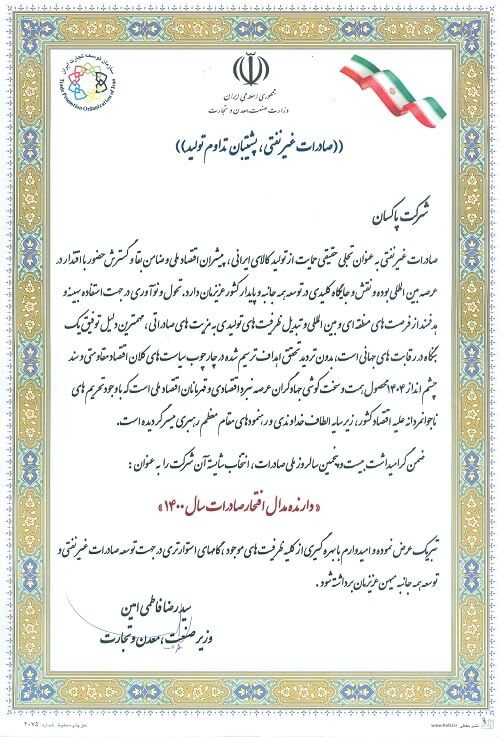 سازمان توسعه تجارت ایران
Trade Promotion Organization of Iran
جمهوری اسلامی ایران
وزارت صنعت، معدن و تجارت
((صادرات غیرنفتی، پشتیبان تداوم تولید))
شرکت پاکسان
صادرات غیرنفتی به عنوان تجلی حقیقی حمایت از تولید کالای ایرانی، پیشران اقتصاد ملی و ضامن بقا و گسترش حضور با اقتدار در
عرصه بین المللی بوده و نقش و جایگاه کلیدی در توسعه همه جانبه و پایدار کشور عزیزمان دارد. تحول و نوآوری در جهت استفاده بهینه و
هدفمند از فرصت های منطقه ای و بین المللی و تبدیل ظرفیت های تولیدی به مزیت های صادراتی، مهمترین دلیل توفیق یک
بنگاه در رقابت های جهانی است، بدون تردید تحقق اهداف ترسیم شده در چارچوب سیاست های کلان اقتصاد مقاومتی و سند
چشم انداز ۱۴۰۴ محصول همت و سخت کوشی جهادگران عرصه نبرد اقتصادی و قهرمانان اقتصاد ملی است که با وجود تحریم های
ناجوانمردانه علیه اقتصاد کشور، زیر سایه الطاف خداوندی و رهنمودهای مقام معظم رهبری میسر گردیده است.
ضمن گرامیداشت بیست و پنجمین سالروز ملی صادرات، انتخاب شایسته آن شرکت را به عنوان:
«دارنده مدال افتخار صادرات سال ۱۴۰۰»
تبریک عرض نموده و امیدوارم با بهره گیری از کلیه ظرفیت های موجود، گامهای استوارتری در جهت توسعه صادرات غیرنفتی و
توسعه همه جانبه میهن عزیزمان برداشته شود.
سید رضا فاطمی امین
وزیر صنعت، معدن و تجارت
حق چاپ محفوظ شماره: ۲۰۷۵